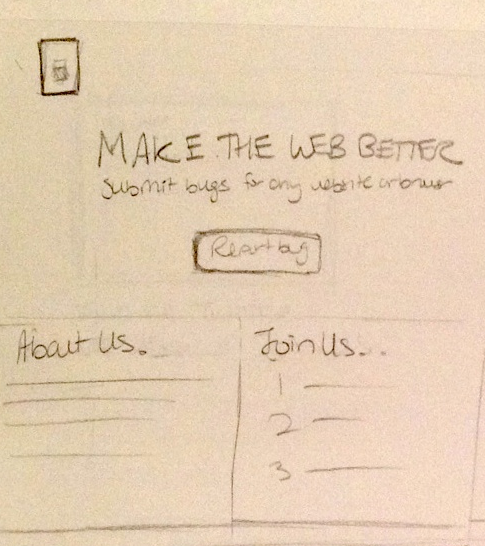 MAKE THE WEB BETTER
Submit bugs for any website or browser
Report bug
About Us.
Join Us...
1
2
3